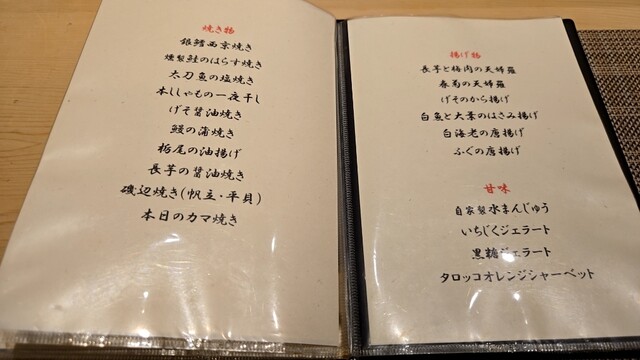 焼き物
銀鱈西京焼き
燻製鮭のはらす焼き
太刀魚の塩焼き
本ししゃもの一夜干し
げそ醤油焼き
鰻の蒲焼き
栃尾の油揚げ
長芋の醤油焼き
磯辺焼き(帆立・平貝)
本日のカマ焼き
揚げ物
長芋と梅肉の天婦羅
春菊の天婦羅
げそのから揚げ
白魚と大葉のはさみ揚げ
白海老の唐揚げ
ふぐの唐揚げ
甘味
自家製水まんじゅう
いちじくジェラート
黒糖ジェラート
タロッコオレンジシャーベット